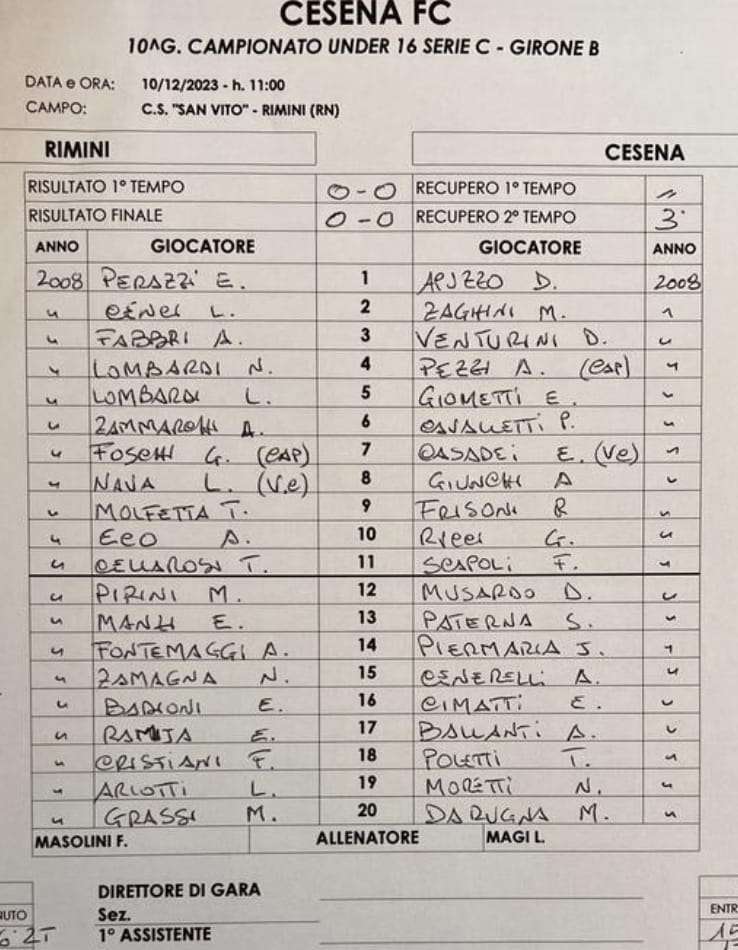 CESENA FC
10^G. CAMPIONATO UNDER 16 SERIE C - GIRONE B
DATA e ORA: 10/12/2023 - h. 11:00
CAMPO: C.S. "SAN VITO" - RIMINI (RN)
RIMINI CESENA
RISULTATO 1° TEMPO 0-0 RECUPERO 1° TEMPO
RISULTATO FINALE 0-0 RECUPERO 2° TEMPO 3'
ANNO GIOCATORE GIOCATORE ANNO
2008 PERAZZI E. 1 APUZZO D. 2008
" CENCI L. 2 ZAGHINI M. "
" FABBRI A. 3 VENTURINI D. "
" LOMBARDI N. 4 PEZZI A. (CAP) "
" LOMBARDI L. 5 GIOMETTI E. "
" ZAMMARCHI A. 6 CAVALLETTI P. "
" FOSCHI G. (CAP) 7 CASADEI E. (VC) "
" NAVA L. (V.C) 8 GIUNCHI A "
" MOLFETTA T. 9 FRISONI R "
" ECO A. 10 RICCI G. "
" CELLAROSI T. 11 SCAPOLI F. "
" PIRINI M. 12 MUSARDO D. "
" MANLI E. 13 PATERNA S. "
" FONTEMAGGI A. 14 PIERMARIA J. "
" ZAMAGNA N. 15 CENERELLI A. "
" BADIONI E. 16 CIMATTI E. "
" RAMIJA E. 17 BALLANTI A. "
" CRISTIANI F. 18 POLETTI T. "
" ARLOTTI L. 19 MORETTI N. "
" GRASSI M. 20 DARUGNA M. "
MASOLINI F. ALLENATORE MAGI L.
DIRETTORE DI GARA
Sez.
1° ASSISTENTE
NUTO
2T
ENTR
15